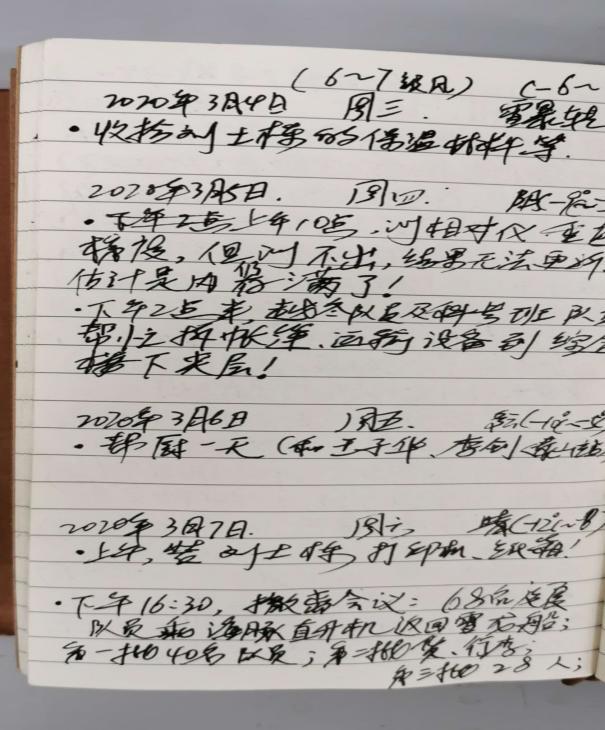 (6~7级风) (-6~
2020年3月4日 周三. 雪暴
·收拾刘士栋的保温材料等.
2020年3月5日. 周四.
·下午2点上午10点,测相对仪
但测不出,结果无法更新
估计是内存满了!
·下午2点来,队
帮忙拆帐篷、运输设备到综合
楼下夹层!
2020年3月6日 周五.
·帮厨一天(和王子华、李
2020年3月7日. 周六 晴(-12~-8)
·上午,装刘士栋,打印机、纸箱!
·下午16:30,撤离会议:68名度夏
队员乘海豚直升机返回雪龙船;
第一批40名队员;第二批货、行李;
第三批28人;